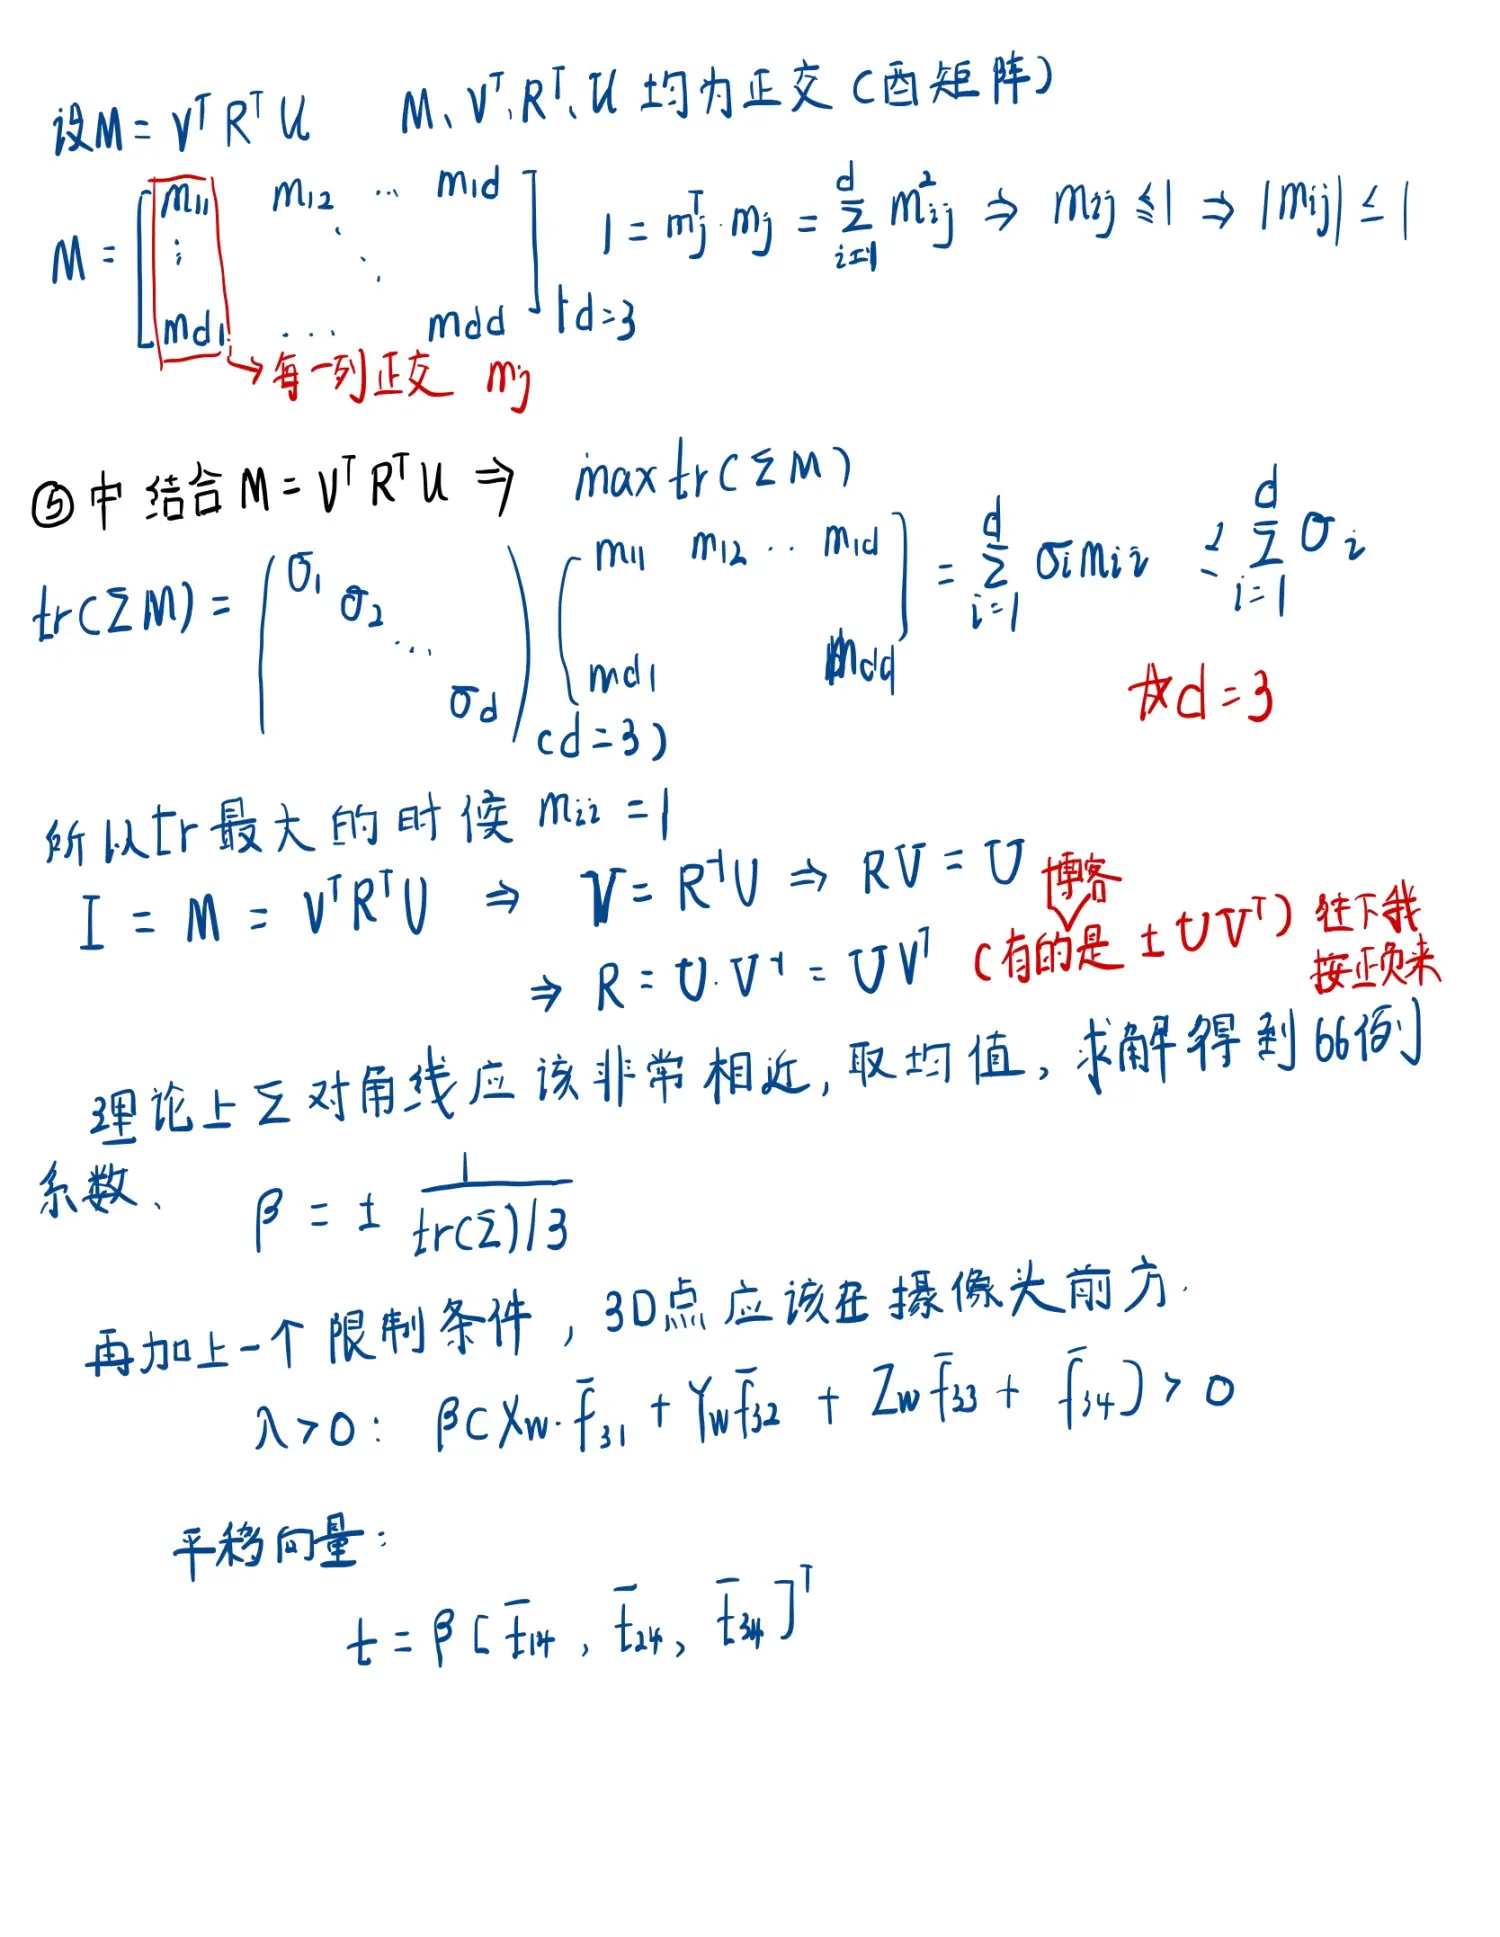 设M = Vᵀ Rᵀ U    M、Vᵀ、Rᵀ、U 均为正交(酉矩阵)
M = [ m11 m12 ... m1d ⋮ ⋱ md1 ... mdd ] d=3    1 = mjᵀ·mj = Σ_{i=1}^{d} m²ij ⇒ mij ≤ 1 ⇒ |mij| ≤ 1
→ 每一列正交 mj
⑤中结合 M = Vᵀ Rᵀ U ⇒ max tr(ΣM)
tr(ΣM) = ( σ1 σ2 ... σd ) [ m11 m12 ... m1d md1 mdd ] = Σ_{i=1}^{d} σi mii ≤ Σ_{i=1}^{d} σi
(d=3)
☆d=3
所以tr最大的时候 mii = 1
I = M = VᵀRᵀU ⇒ V = R⁻¹U ⇒ RV = U
博客
⇒ R = U·V⁻¹ = UVᵀ (有的是 ± UVᵀ) 往下我
按正负来
理论上Σ对角线应该非常相近, 取均值, 求解得到的比例
系数、 β = ± 1 / tr(Σ)/3
再加上一个限制条件, 3D点应该在摄像头前方.
λ>0: β(Xw·f̄31 + Ywf̄32 + Zwf̄33 + f̄34) > 0
平移向量:
t = β[t̄14, t̄24, t̄34]ᵀ